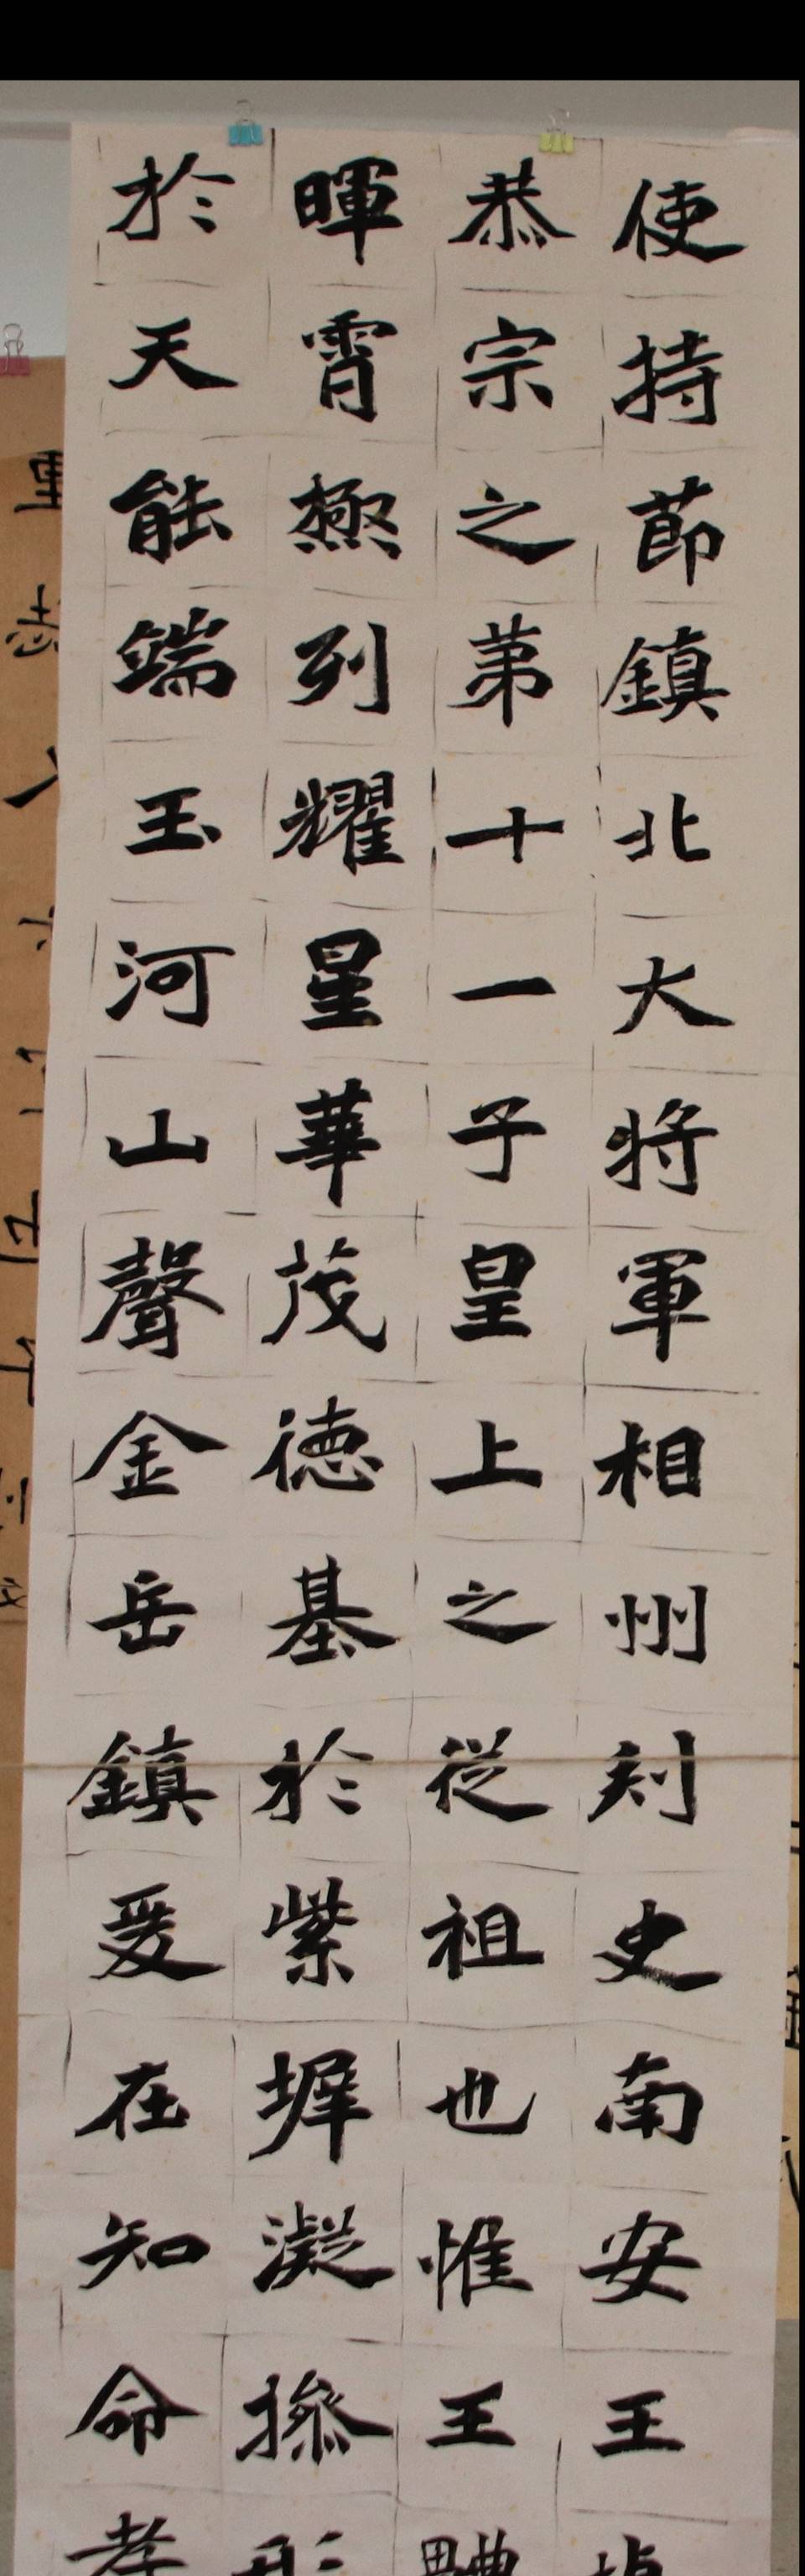 使持莭鎮北大将軍相州刾史南安王楨
恭宗之苐十一子皇上之從祖也惟王體
暉霄極列耀星華茂徳基於紫墀凝摻形
於天能端玉河山聲金岳鎮爰在知命孝